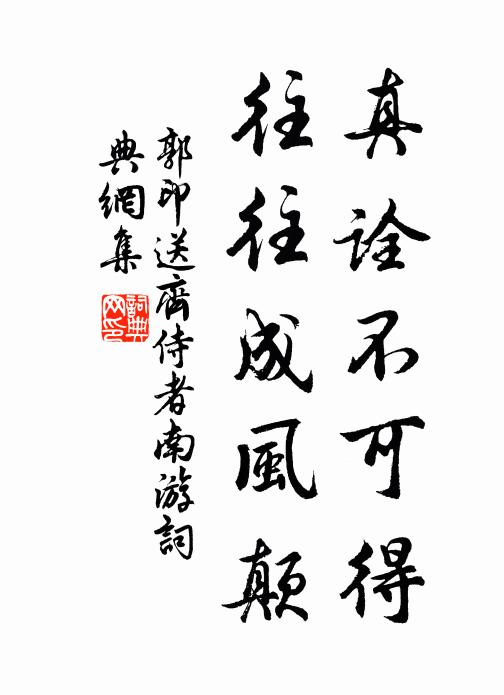 真詮不可得
往往成風顛
郭印送齊侍者南游詞
典網集
詞典
网印